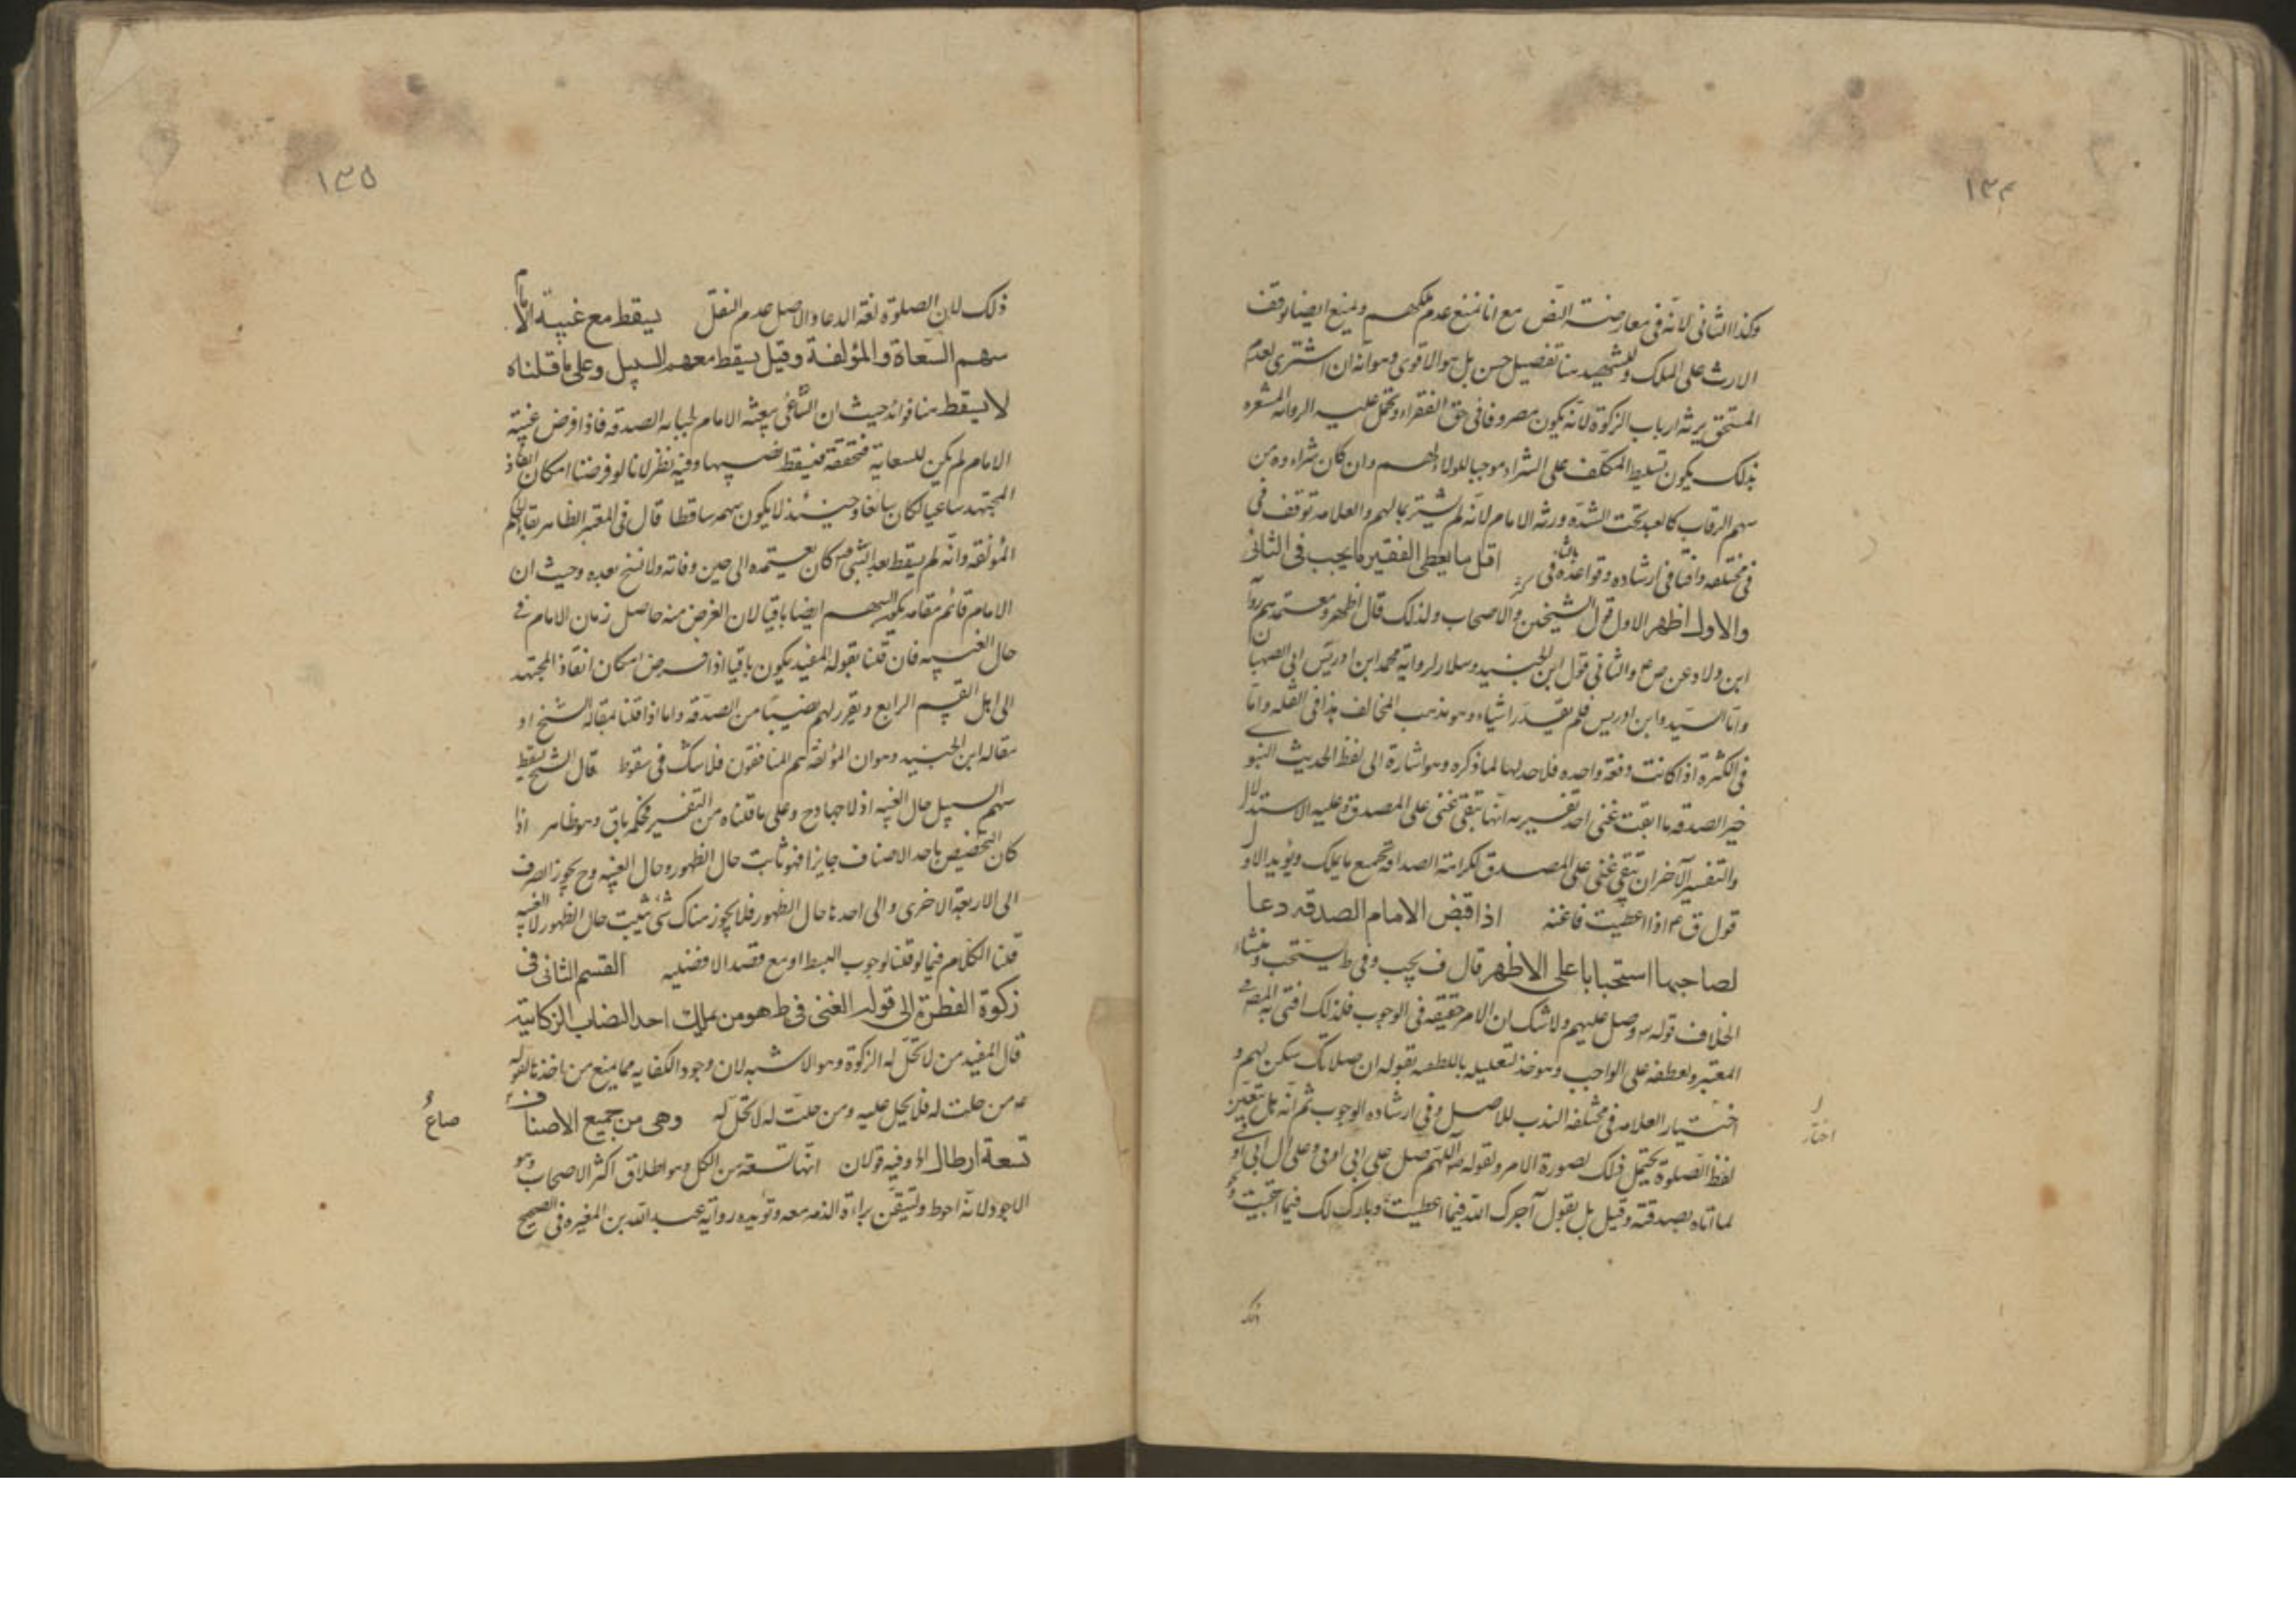 ١٣٤
وكذا الثانى لانه فى معارضة النص مع انا نمنع عدم ملكهم ونمنع ايضا توقف
الارث على الملك وللشهيد هنا تفصيل حسن بل هو الاقوى وهو انه ان اشترى لعدم
المستحق يرثه ارباب الزكوة لانه يكون مصروفا فى حق الفقراء وتحمل عليه الرواية المشعره
بذلك يكون تسليط المكلف على الشراء موجبا للولاء لهم وان كان شراءوه من
سهم الرقاب كالعبد تحت الشدة ورثه الامام لانه لم يشتر بمالهم والعلامة توقف فى
فى مختلفه وافتا فى ارشاده وقواعده بالثانى اقل ما يعطى الفقير ما يجب فى الثانى
والاول اظهر الاول قول الشيخين والاصحاب ولذلك قال اظهر ومعتمدهم روآ
ابن ولاد عن ص ع والثانى قول ابن الجنيد وسلار لرواية محمد ابن ادريس ابى الصهبان
واما السيد وابن ادريس فلم يقدرا شيئا وهو مذهب المخالف هذا فى القله واما
فى الكثرة اذا كانت دفعة واحده فلا حد لها لما ذكره وهو اشارة الى لفظ الحديث النبو
خير الصدقه ما ابقت غنى احد تفسيريه انها تبقى غنى على المصدق وعليه الاستدلال
والتفسير الآخر ان تبقى غنى على المصدق لكراهة الصدقة بجميع ما يملك ويؤيد الاول
قول ق ع اذا اعطيت فاغنه اذا قبض الامام الصدقه دعا
لصاحبها استحبابا على الاظهر قال ف يجب وفى ط يستحب ومنشاء
الخلاف قوله تع وصل عليهم ولا شك ان الامر حقيقة فى الوجوب فلذلك افتى به المص فى
المعتبر ولعطفه على الواجب وهو خذ لتعليله باللطف بقوله ان صلاتك سكن لهم و
اختيار العلامه فى مختلفه الندب للاصل وفى ارشاده الوجوب ثم انه هل يتعين
اختار
لفظ الصلوة يحتمل ذلك لصورة الامر ولقوله ع اللهم صل على ابى اوفى وعلى آل ابى او فى
لما اتاه بصدقته وقيل بل يقول آجرك الله فيما اعطيت وبارك لك فيما ابقيت
ذلك
١٣٥
ذلك لان الصلوة لغة الدعاء والاصل عدم النقل يسقط مع غيبة الامام
سهم السعاة والمؤلفة وقيل يسقط معهم السبيل وعلى ما قلناه
لا يسقط هنا فوائد حيث ان الساعى يبعثه الامام لجبابة الصدقه فاذا فرض غيبة
الامام لم يكن للسعاية متحققة فيسقط نصيبها وفيه نظر لانا لو فرضنا امكان انفاذ
المجتهد ساعيا لكان سائغا وحينئذ لا يكون سهمه ساقطا قال فى المعتبر الظاهر بقاء حكم
المؤلفه وانه لم يسقط بعد النبى ص كان يعتمده الى حين وفاته ولا نسخ بعده وحيث ان
الامام قائم مقامه يكون السهم ايضا باقيا لان الغرض منه حاصل زمان الامام فى
حال الغيبه فان قلنا بقولة المفيد يكون باقيا اذا فرض امكان انفاذ المجتهد
الى اهل القسم الرابع ويقرر لهم نصيبا من الصدقه واما اذا قلنا بمقالة الشيخ او
مقاله ابن الجنيد وهو ان المؤلفة هم المنافقون فلا شك فى سقوط قال الشيخ يسقط
سهم السبيل حال الغيبه اذ لا جهاد ح وعلى ما قلناه من التفسير فحكم باق وهو ظاهر اذا
كان التخصيص باحد الاصناف جايزا فهو ثابت حال الظهور وحال الغيبه وح يجوز الصرف
الى الاربعة الاخرى والى احدها حال الظهور فلا يجوز هناك شئ يثبت حال الظهور لا الغيبه
قلنا الكلام فيما لو قلنا لوجوب البسط او مع قصد الافضليه القسم الثانى فى
زكوة الفطرة الى قوله الغنى فى ط هو من يملك احد النصاب الزكاتية
قال المفيد من لا تحل له الزكوة وهو الاشبه لان وجود الكفايه مما يمنع من اخذها لقوله
ع من حلت له فلا يحل عليه ومن حلت له لا تحل له وهى من جميع الاصناف
صاع
تسعة ارطال اه وفيه قولان انها تسعة من الكل وهو اطلاق اكثر الاصحاب وهو
الاجود لانه احوط ولتيقن براءة الذمه معه وتؤيده رواية عبد الله بن المغيره فى الصحيح